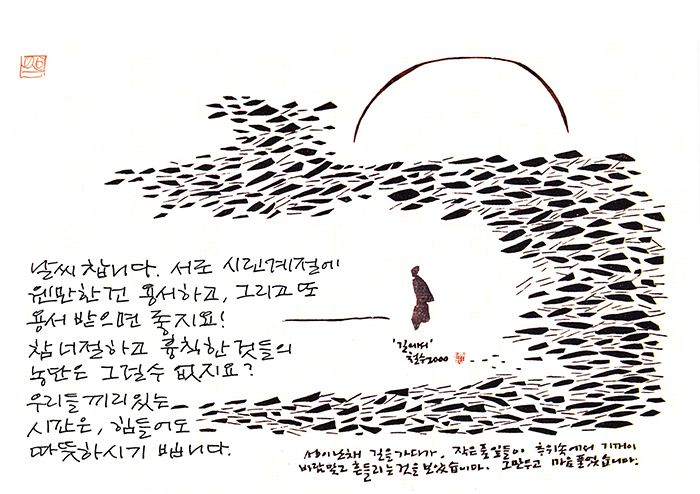 날씨 참니다. 서로 시린계절에
웬만한건 용서하고, 그리고 또
용서 받으면 좋지요!
참 너절하고 흉칙한 것들의
농단은 그럴수 없지요?
우리들끼리 있는
시간은, 힘들어도
따뜻하시기 빕니다.
'길에서'
철수2000
성이난채 길을가다가, 작은풀잎들이 추위속에서 기꺼이
바람맞고 흔들리는것을 보았습니다. 그만두고 마음풀었습니다.